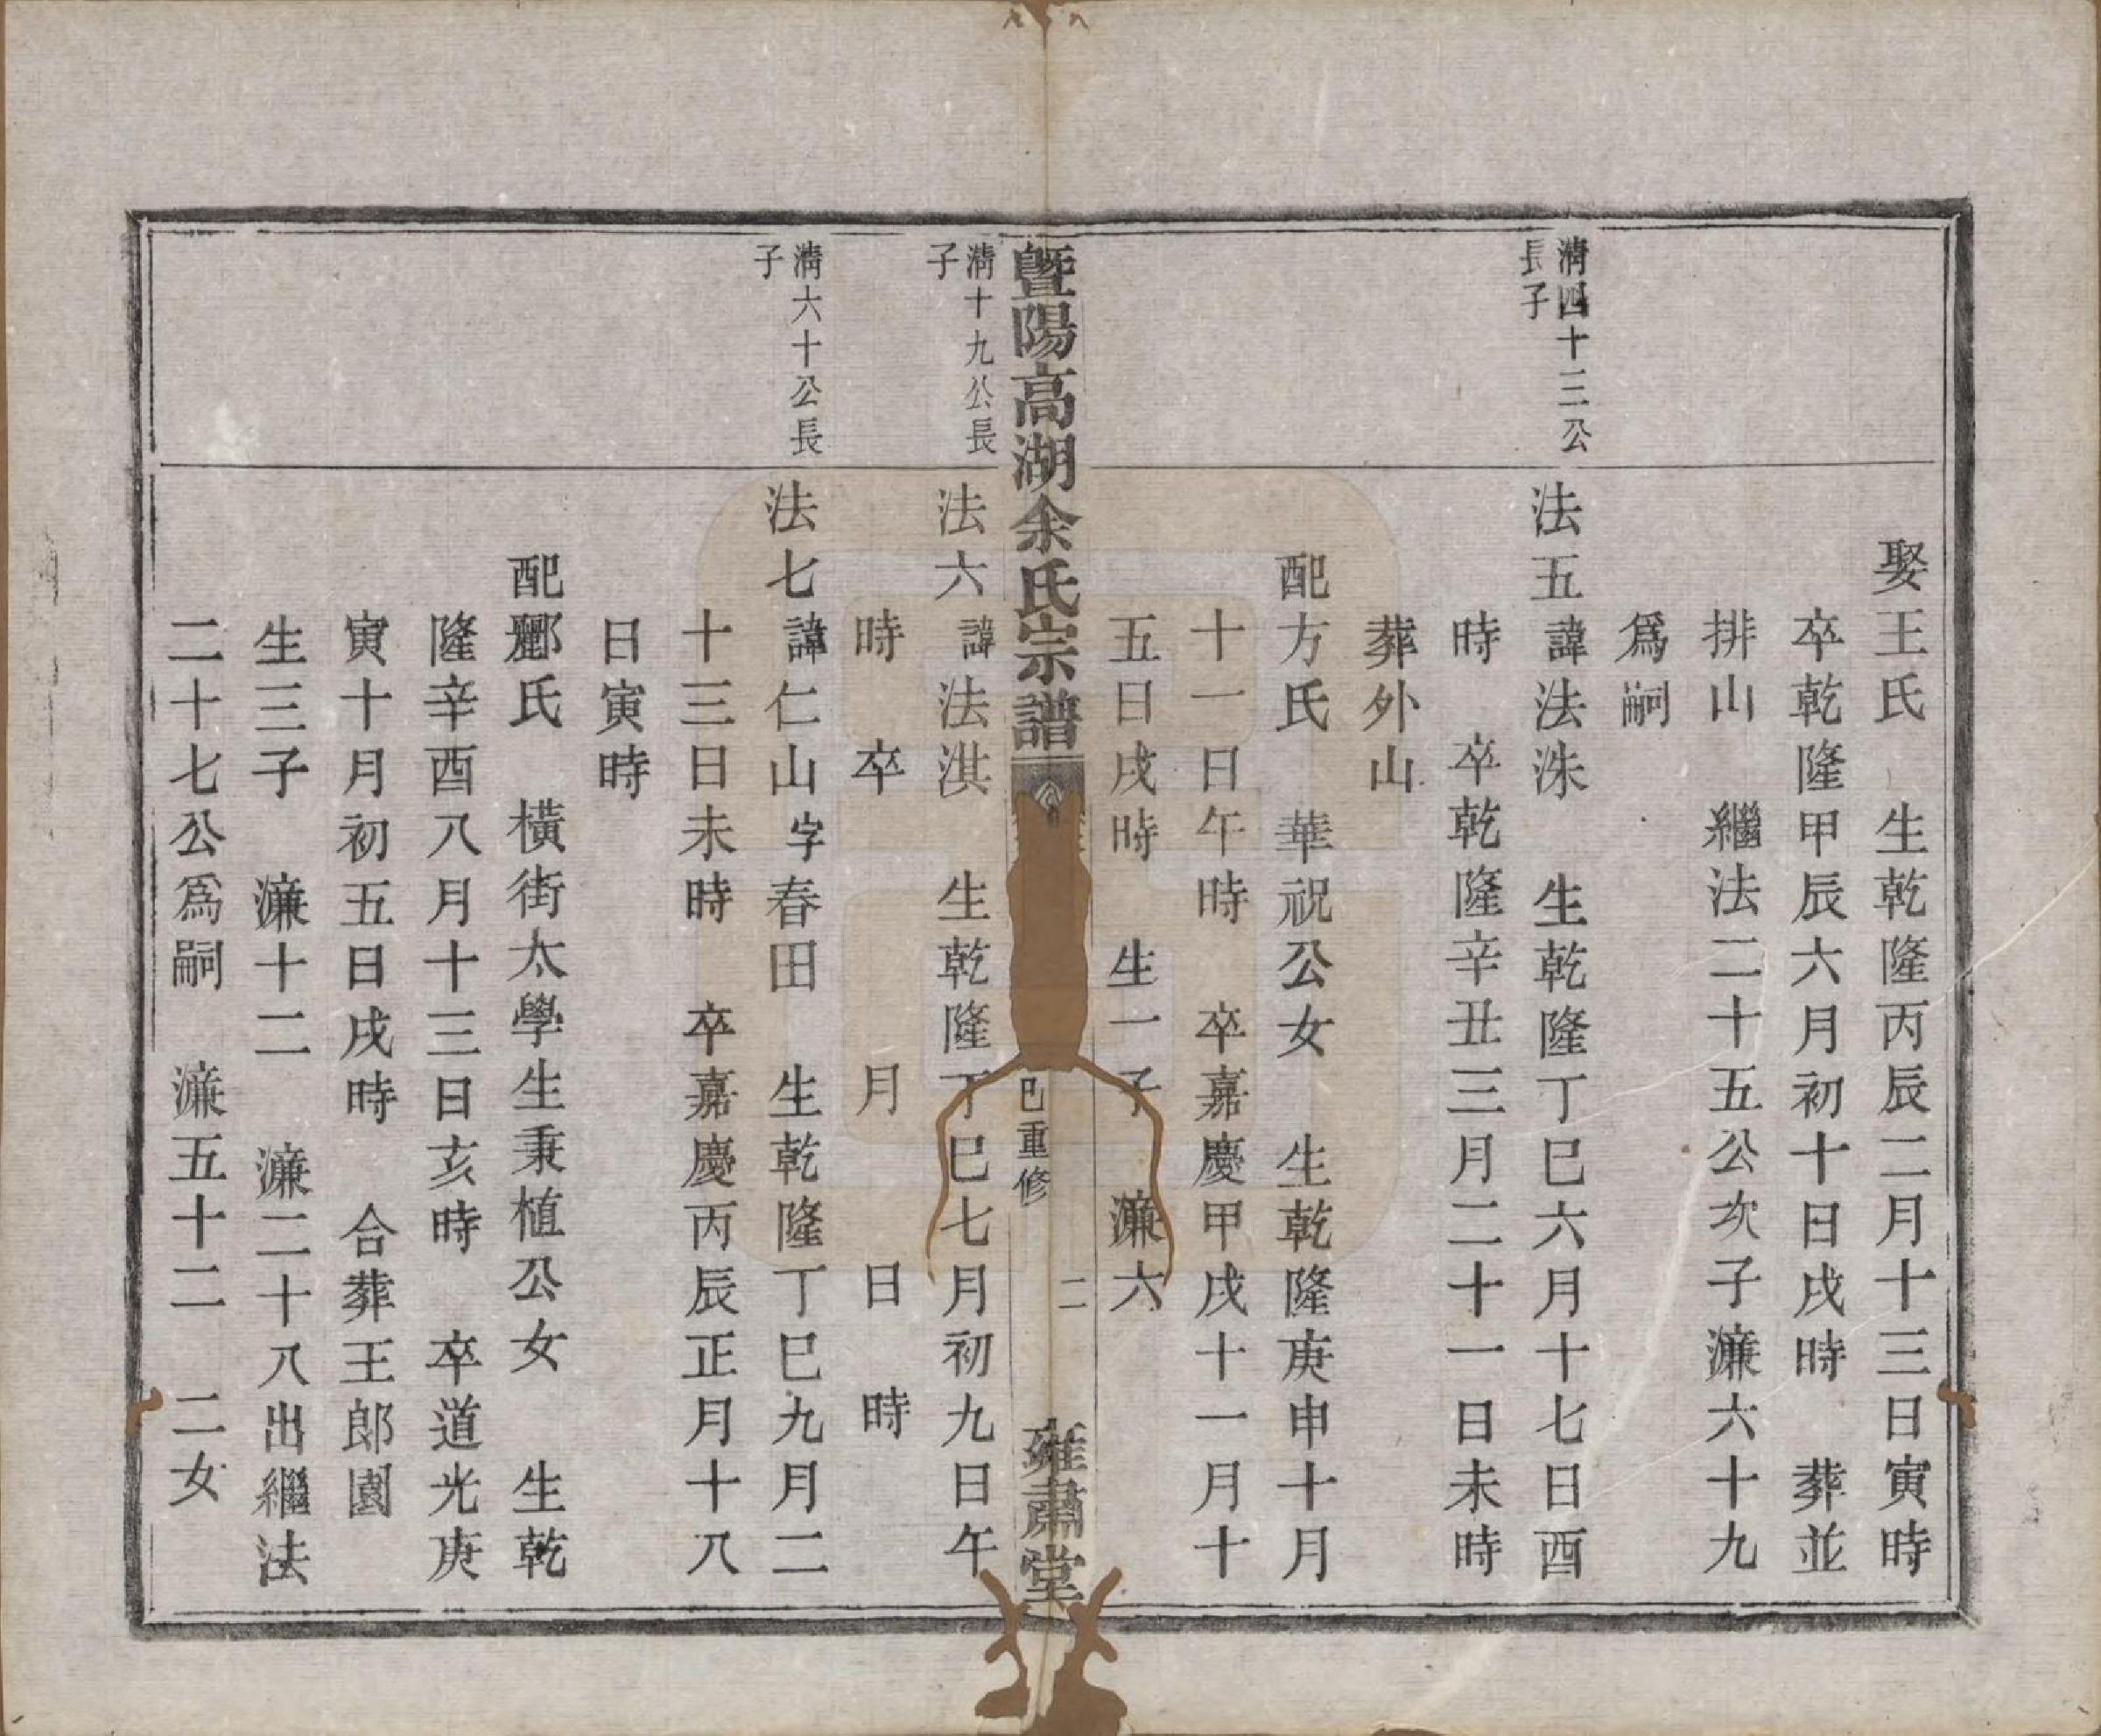 娶王氏　生乾隆丙辰二月十三日寅時
卒乾隆甲辰六月初十日戌時　葬並
排山　繼法二十五公次子濂六十九
爲嗣
淸四十三公
長子
法五諱法洙　生乾隆丁巳六月十七日酉
時　卒乾隆辛丑三月二十一日未時
葬外山
配方氏　華祝公女　生乾隆庚申十月
十一日午時　卒嘉慶甲戌十一月十
五日戌時　生一子　濂六
暨陽高湖余氏宗譜
巳重修
二
雍肅堂
淸十九公長
子
法六諱法淇　生乾隆丁巳七月初九日午
時　卒　月　日　時
淸六十公長
子
法七諱仁山字春田　生乾隆丁巳九月二
十三日未時　卒嘉慶丙辰正月十八
日寅時
配酈氏　橫街太學生秉植公女　生乾
隆辛酉八月十三日亥時　卒道光庚
寅十月初五日戌時　合葬王郎園
生三子　濂十二　濂二十八出繼法
二十七公爲嗣　濂五十二　二女